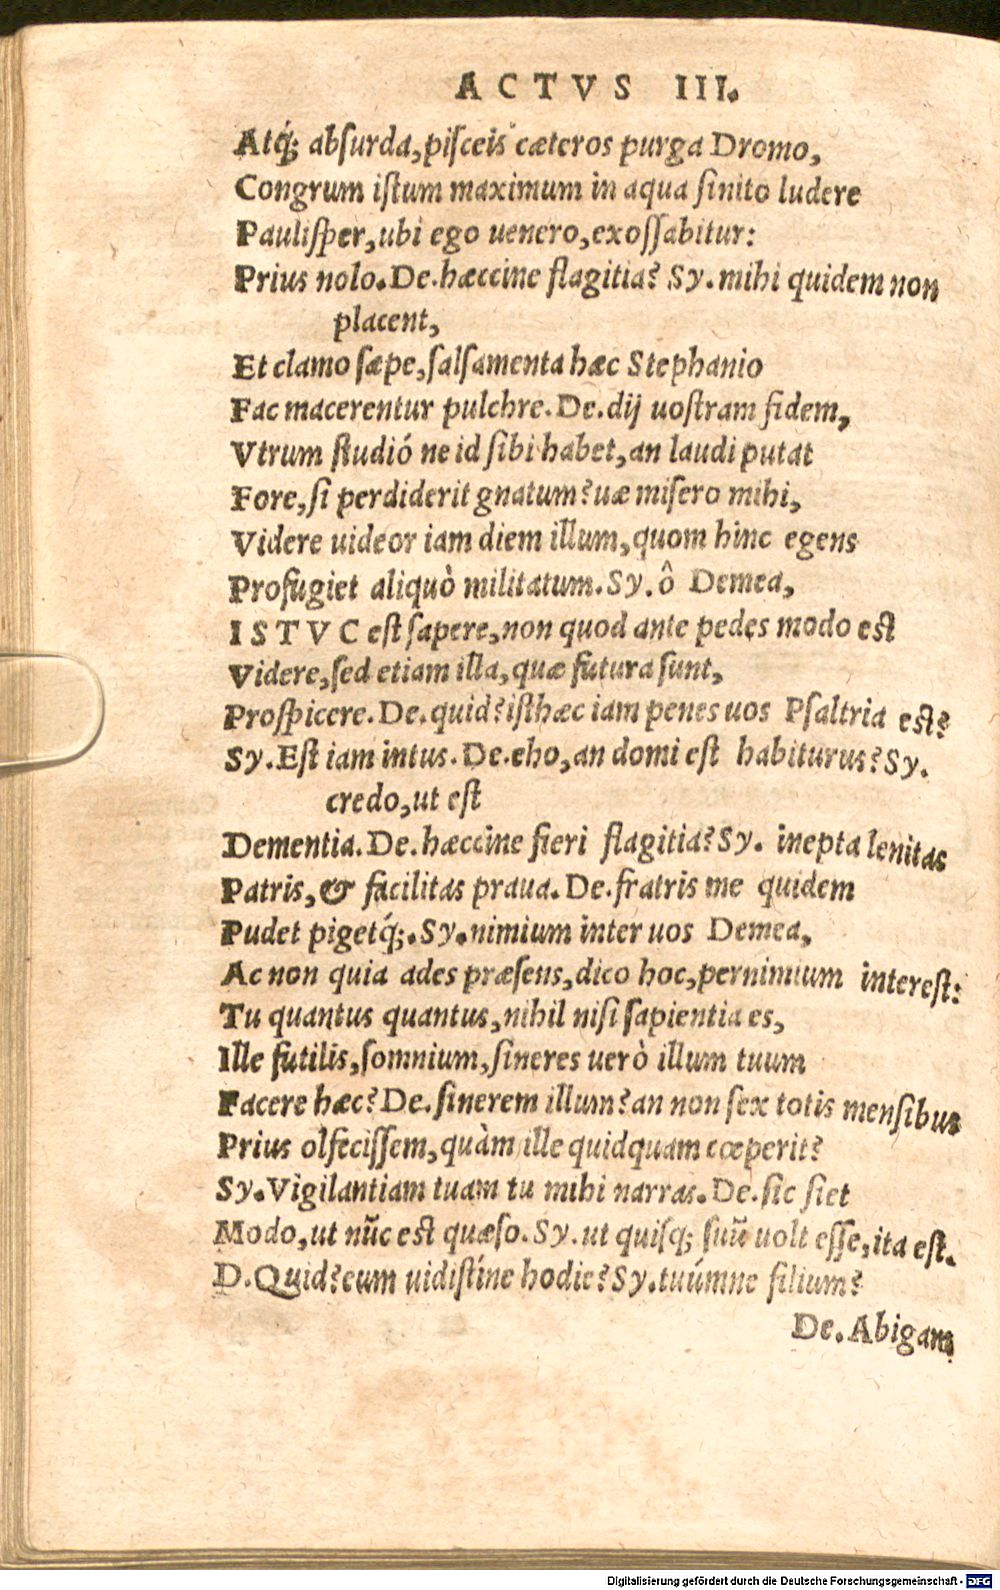 ACTVS III.
Atq́; absurda, pisceis cæteros purga Dromo,
Congrum istum maximum in aqua sinito ludere
Paulisper, ubi ego uenero, exossabitur:
Prius nolo. De. hæccine flagitia? Sy. mihi quidem non
placent,
Et clamo sæpe, salsamenta hæc Stephanio
Fac macerentur pulchre. De. dij uostram fidem,
Vtrum studió ne id sibi habet, an laudi putat
Fore, si perdiderit gnatum? uæ misero mihi,
Videre uideor iam diem illum, quom hinc egens
Profugiet aliquò militatum. Sy. ô Demea,
ISTVC est sapere, non quod ante pedes modo est
Videre, sed etiam illa, quæ futura sunt,
Prospicere. De. quid? isthæc iam penes uos Psaltria est?
Sy. Est iam intus. De. eho, an domi est habiturus? Sy.
credo, ut est
Dementia. De. hæccine fieri flagitia? Sy. inepta lenitas
Patris, & facilitas praua. De. fratris me quidem
Pudet pigetq́;. Sy. nimium inter uos Demea,
Ac non quia ades præsens, dico hoc, pernimium interest:
Tu quantus quantus, nihil nisi sapientia es,
Ille futilis, somnium, sineres uerò illum tuum
Facere hæc? De. sinerem illum? an non sex totis mensibus
Prius olfecissem, quàm ille quidquam cœperit?
Sy. Vigilantiam tuam tu mihi narras. De. sic siet
Modo, ut nūc est quæso. Sy. ut quisq; suū uolt esse, ita est.
D. Quid? eum uidistíne hodie? Sy. tuúmne filium?
De. Abigam
Digitalisierung gefördert durch die Deutsche Forschungsgemeinschaft - DFG